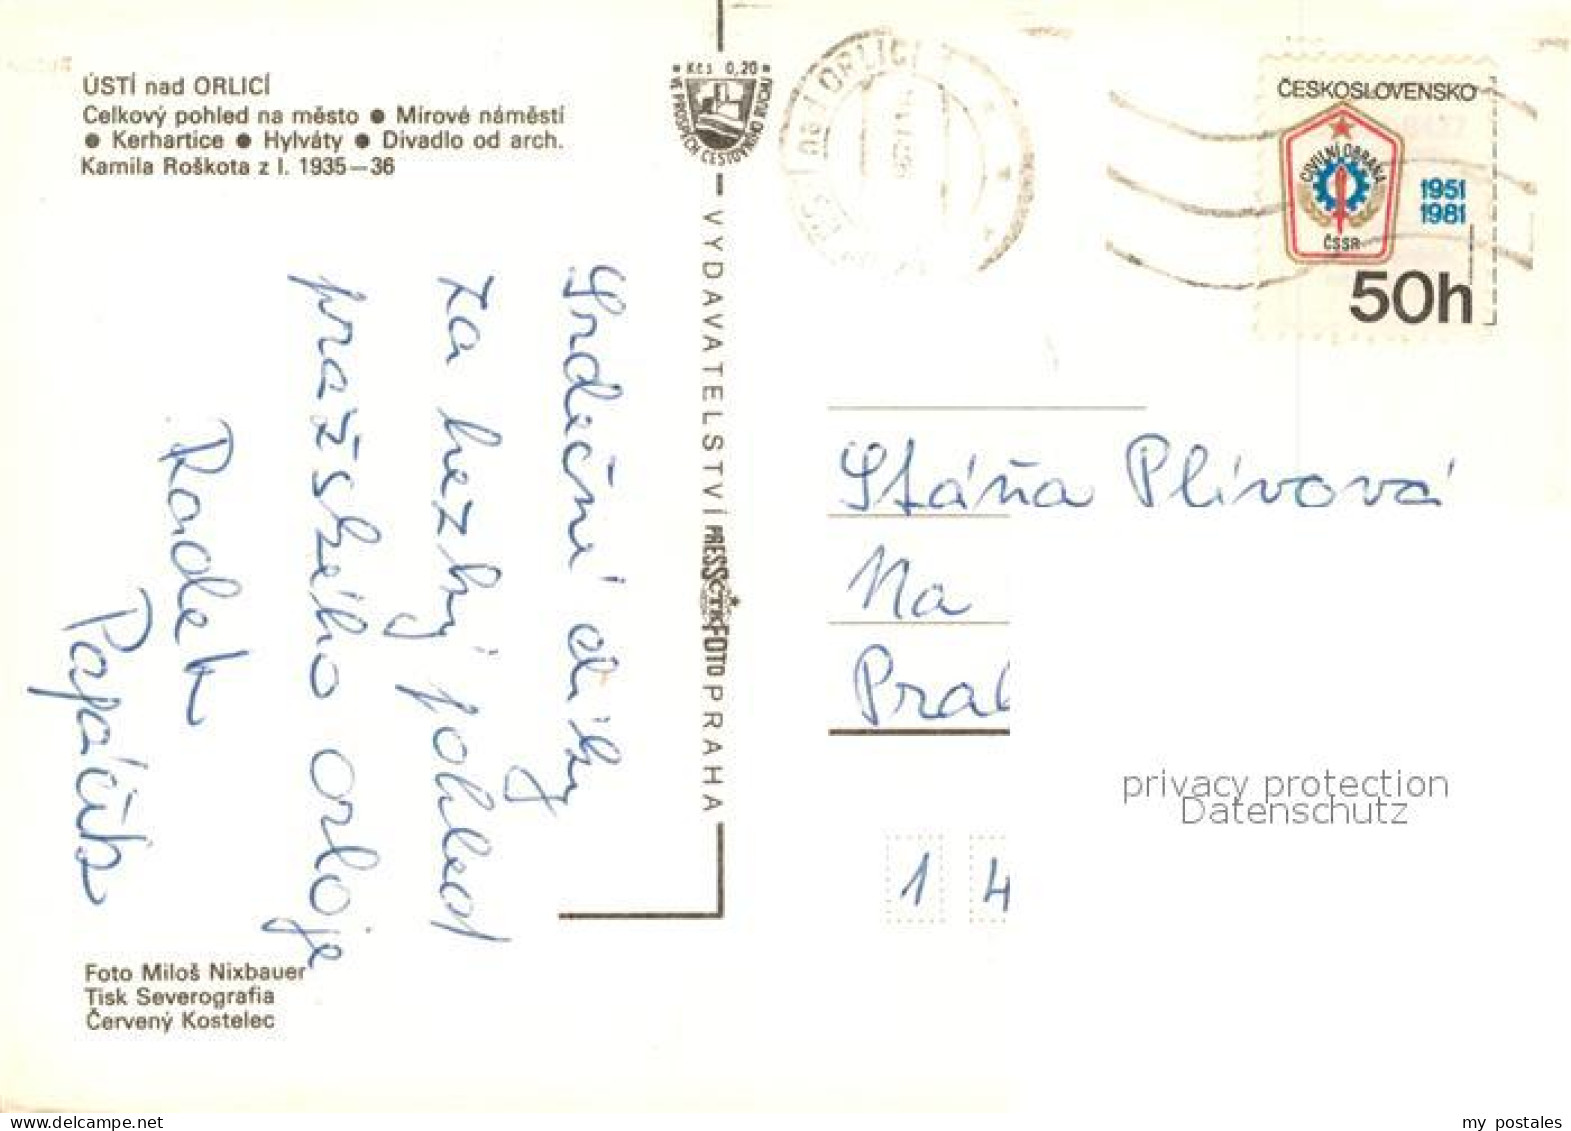 ÚSTÍ nad ORLICÍ
Celkový pohled na město ● Mírové náměstí
● Kerhartice ● Hylváty ● Divadlo od arch.
Kamila Roškota z l. 1935—36
Srdečné díky
za hezký pohled
pražského orloje
Radek
Papáčik
Foto Miloš Nixbauer
Tisk Severografia
Červený Kostelec
Kčs 0,20
VE PROSPĚCH CESTOVNÍHO RUCHU
VYDAVATELSTVÍ PRESSFOTO PRAHA
ORLICÍ
ČESKOSLOVENSKO
CIVILNÍ OBRANA
ČSSR
1951
1981
50h
Stáňa Plívová
Na
Pra
1 4
privacy protection
Datenschutz
delcampe.net
my_postales